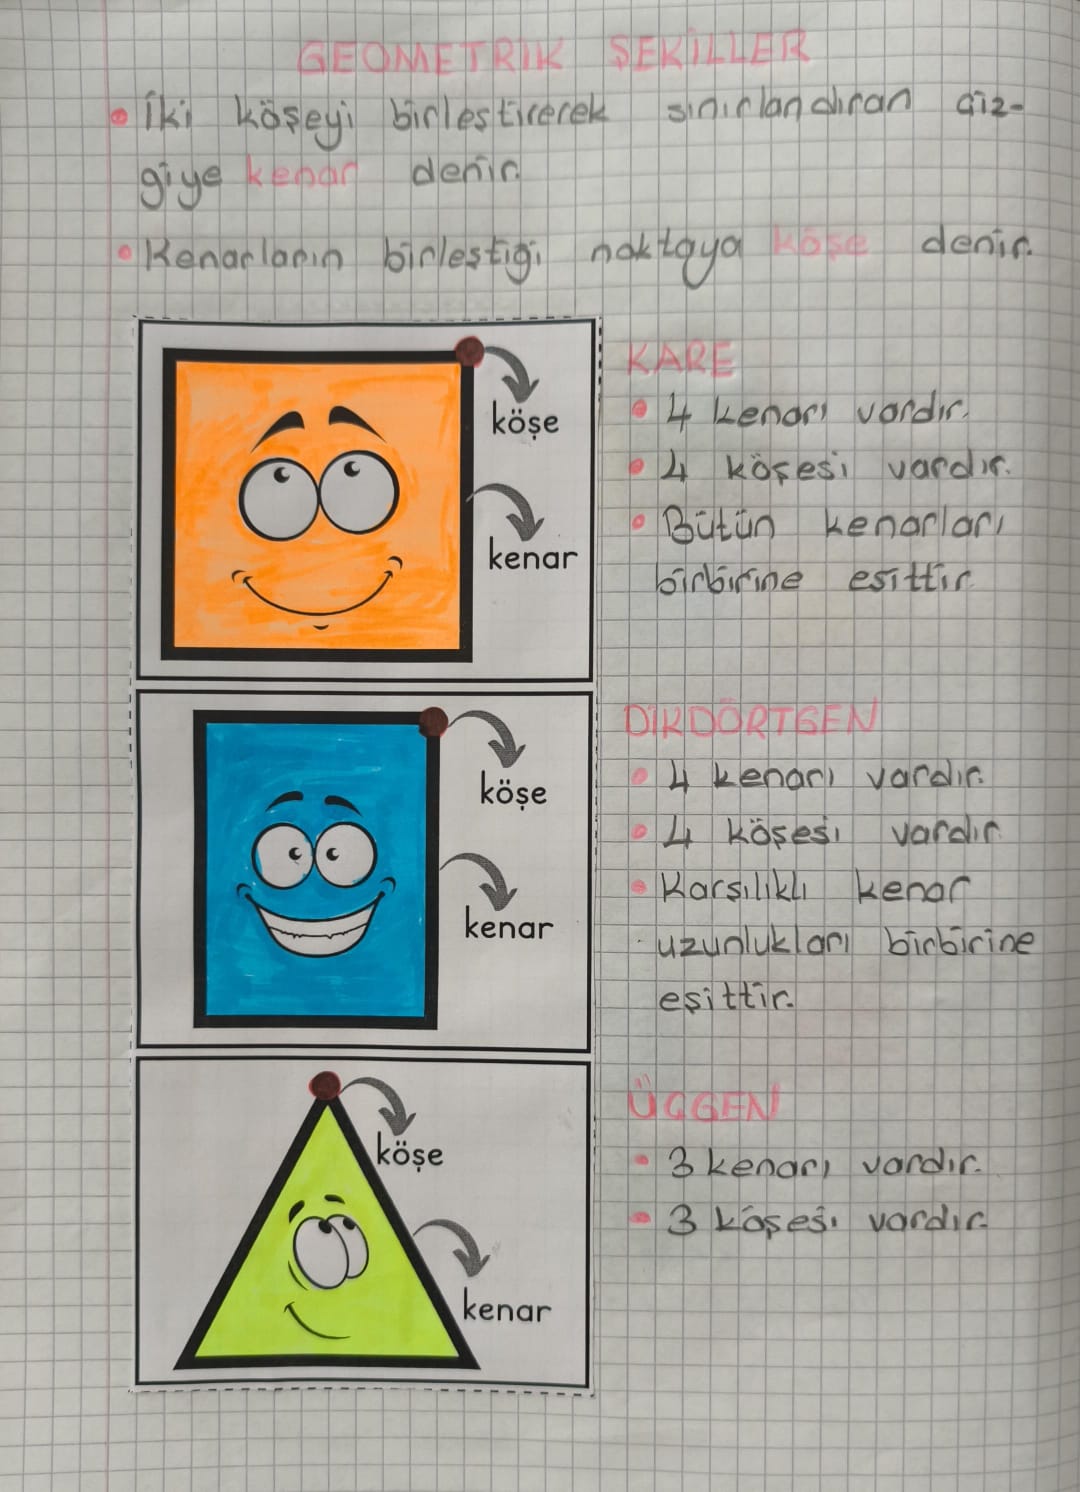 GEOMETRİK ŞEKİLLER
• İki köşeyi birleştirerek sınırlandıran çiz-
giye kenar denir.
• Kenarların birleştiği noktaya köşe denir.
köşe
kenar
KARE
• 4 kenarı vardır.
• 4 köşesi vardır.
• Bütün kenarları
birbirine eşittir.
köşe
kenar
DİKDÖRTGEN
• 4 kenarı vardır.
• 4 köşesi vardır.
• Karşılıklı kenar
uzunlukları birbirine
eşittir.
köşe
kenar
ÜÇGEN
• 3 kenarı vardır.
• 3 köşesi vardır.